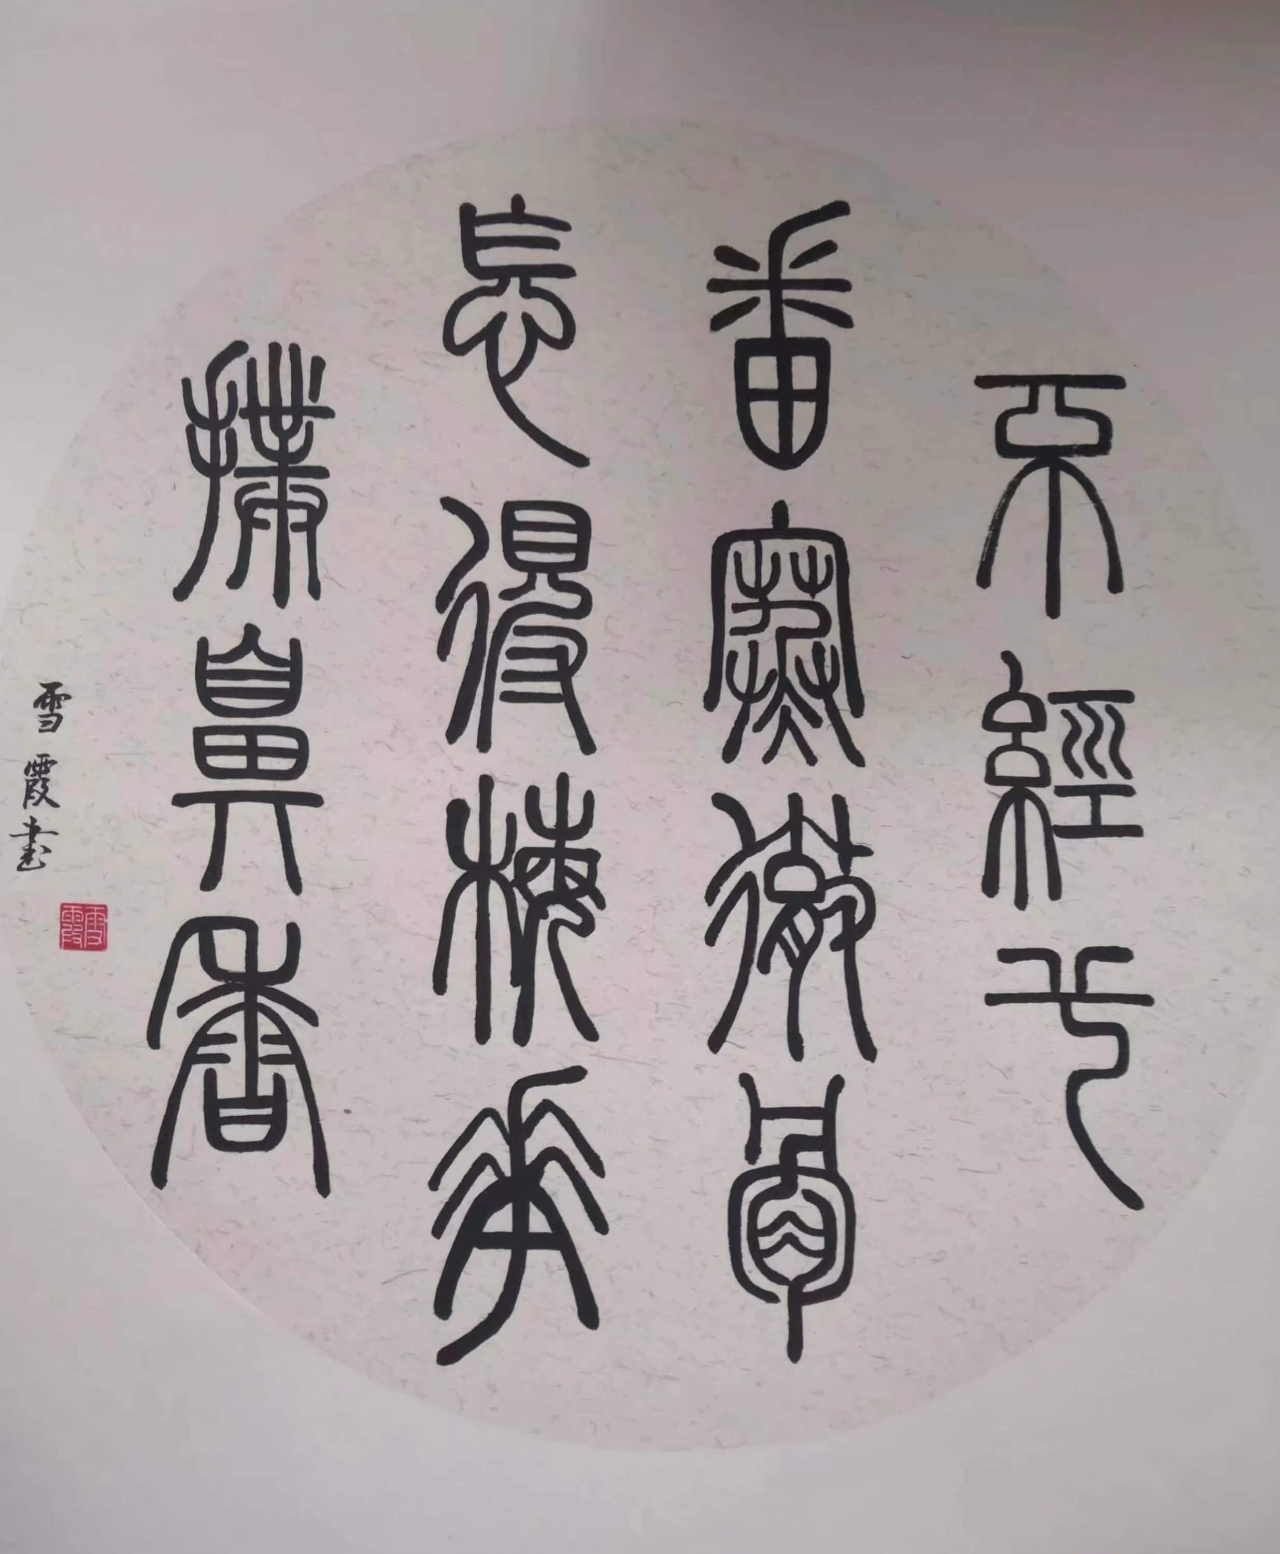 不經一
番寒徹骨
怎得梅花
撲鼻香
雪霞書
雪霞